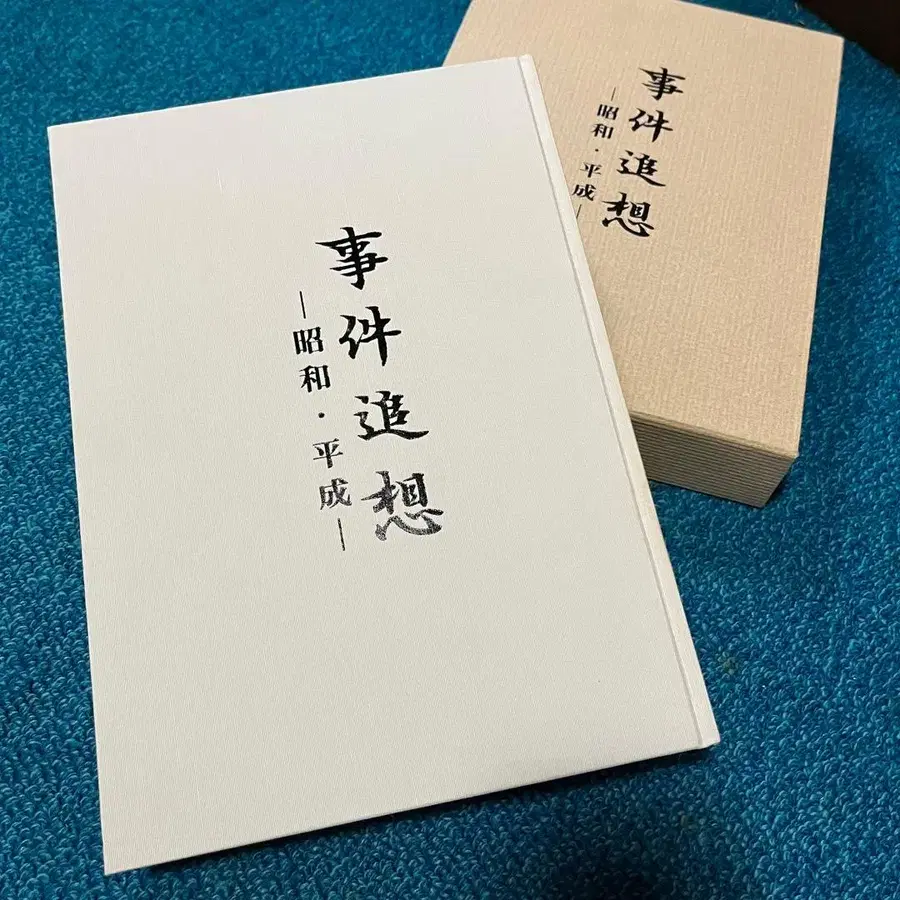 事件追想
―昭和・平成―
事件追想
―昭和・平成―